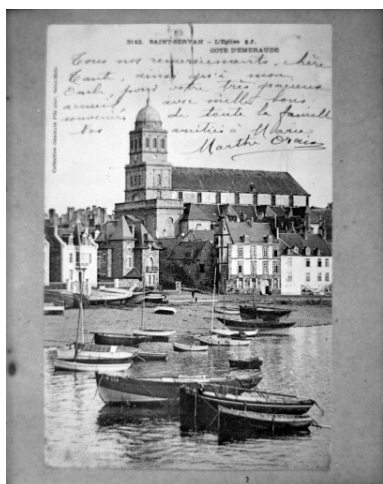 3142. SAINT-SERVAN – L'Eglise G.F.
COTE D'EMERAUDE
Tous nos remerciements, chère
Tante, ainsi qu'à mon
Oncle, pour votre très gracieux
accueil, avec mille bons
souvenirs de toute la famille
Nos amitiés à Marie
Marthe